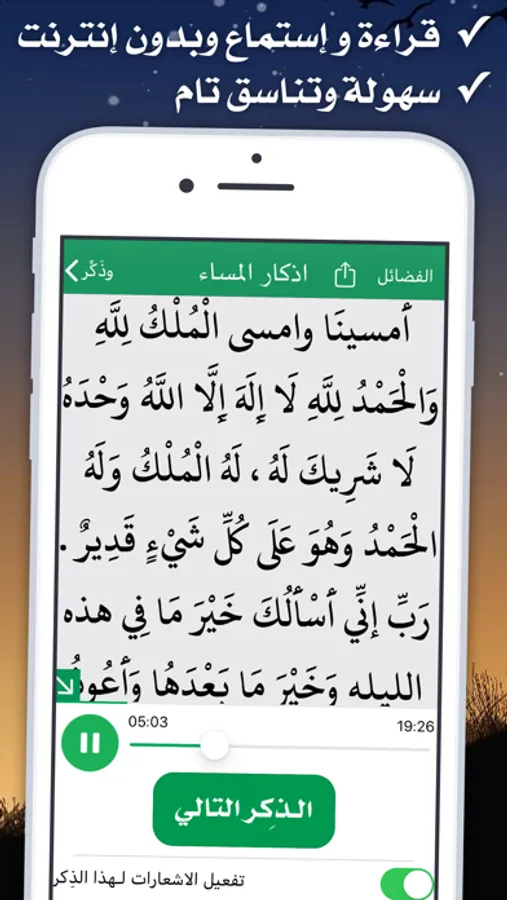 ✓ قراءة و إستماع وبدون إنترنت
✓ سهولة وتناسق تام
الفضائل
اذكار المساء
وذَكِّر
أمسينَا وامسى الْمُلْكُ لِلَّهِ
وَالْحَمْدُ لِلَّهِ لَا إِلَهَ إِلَّا اللَّهُ وَحْدَهُ
لَا شَرِيكَ لَهُ ، لَهُ الْمُلْكُ وَلَهُ
الْحَمْدُ وَهُوَ عَلَى كُلِّ شَيْءٍ قَدِيرٌ .
رَبِّ إِنِّي أَسْأَلُكَ خَيْرَ مَا فِي هذه
الليله وَخَيْرَ مَا بَعْدَهَا وَأَعُوذُ
05:03
19:26
الذِكر التالي
تفعيل الاشعارات لهذا الذِكر